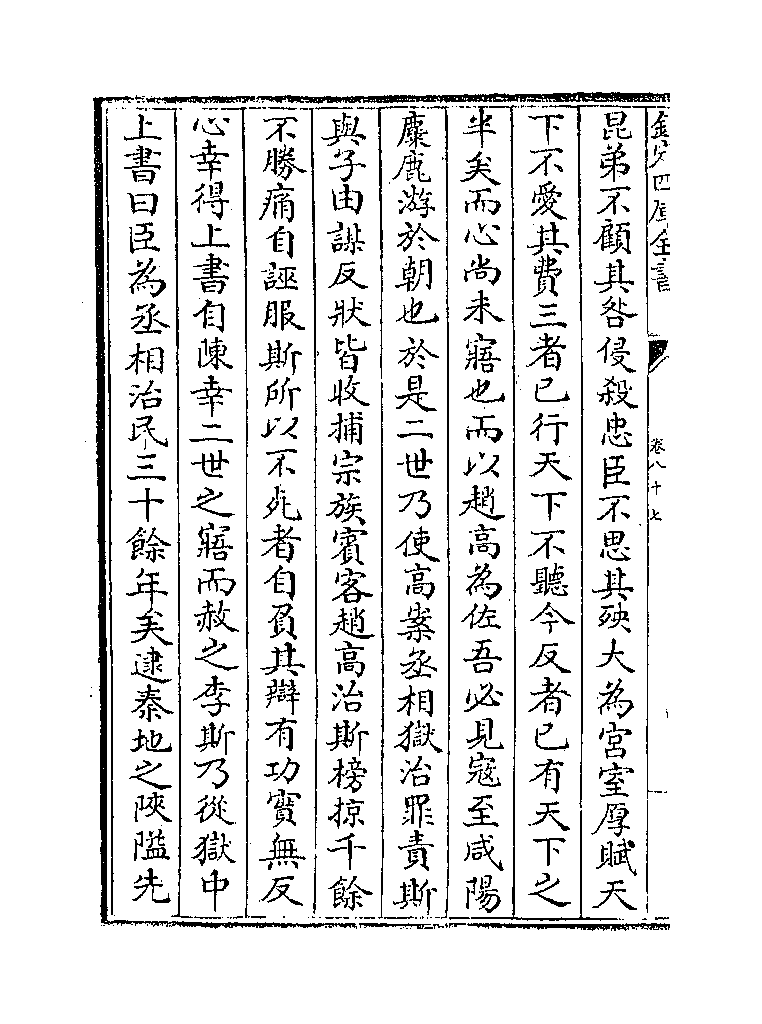 欽定四庫全書
卷八十七
昆弟不顧其咎侵殺忠臣不思其殃大為宮室厚賦天
下不愛其費三者已行天下不聽今反者已有天下之
半矣而心尚未寤也而以趙高為佐吾必見寇至咸陽
麋鹿游於朝也於是二世乃使高案丞相獄治罪責斯
與子由謀反狀皆收捕宗族賓客趙高治斯榜掠千餘
不勝痛自誣服斯所以不死者自負其辯有功實無反
心幸得上書自陳幸二世之寤而赦之李斯乃從獄中
上書曰臣為丞相治民三十餘年矣逮秦地之陝隘先